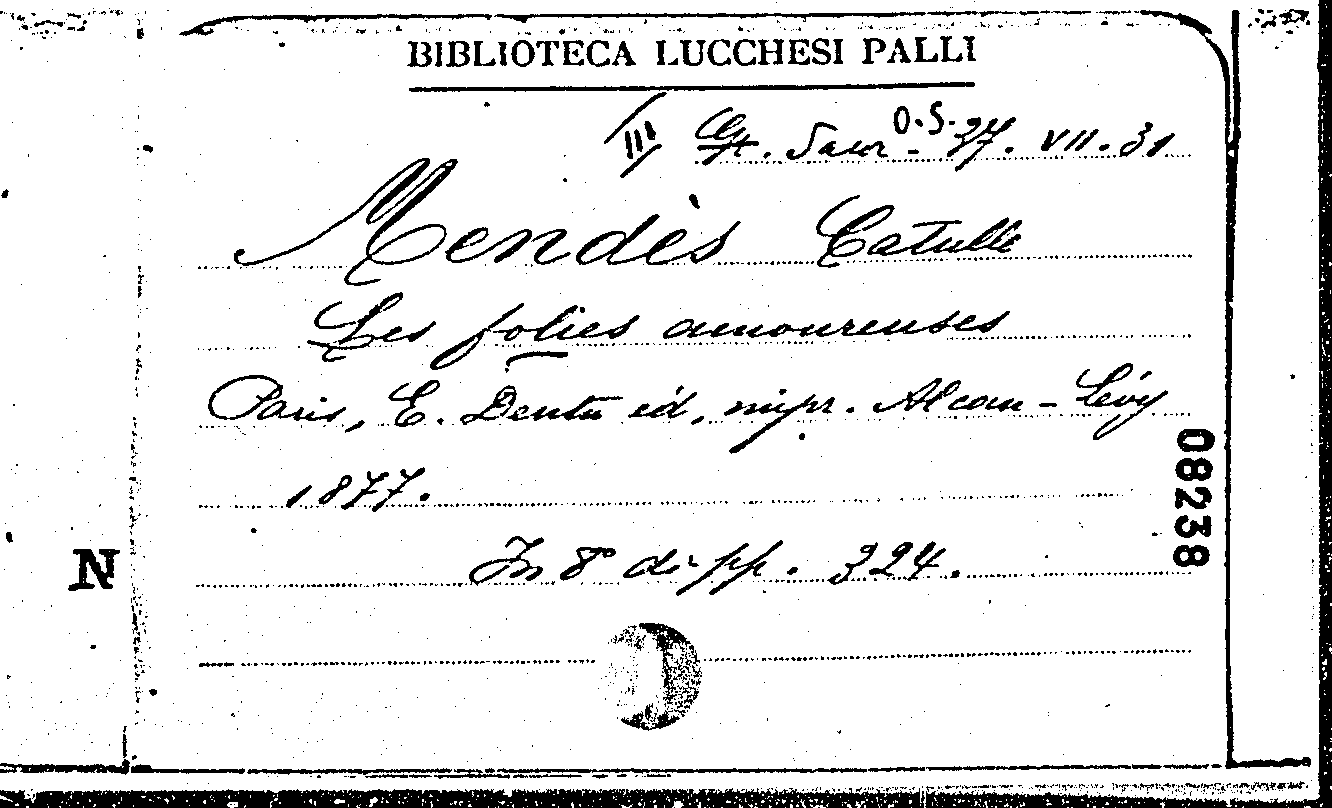 BIBLIOTECA LUCCHESI PALLI
III O.S. 37. VII. 31
Mendès Catulle
Les folies amoureuses
Paris, E. Dentu éd, impr. Alcan-Lévy
1877.
In 8° di pp. 324.
N
08238